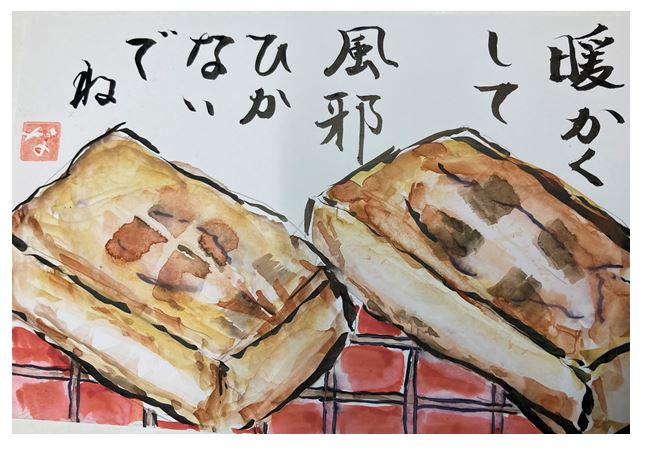 暖かく
して
風邪
ひか
ない
で
ね